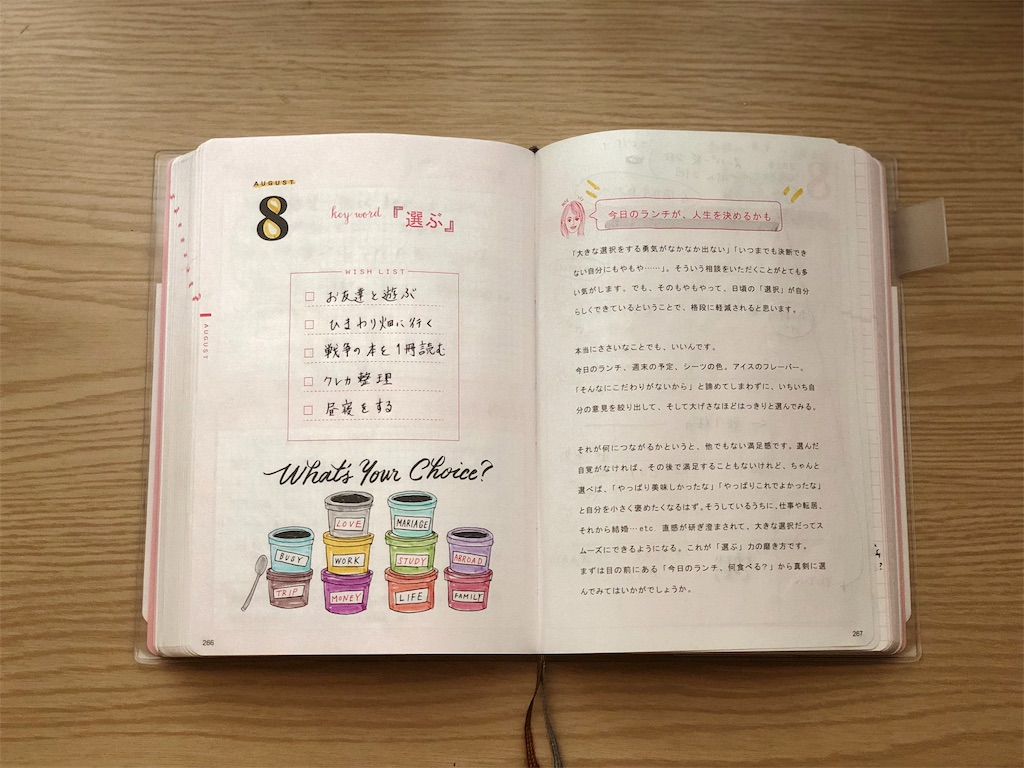 AUGUST
8
key word 『選ぶ』
WISH LIST
お友達と遊ぶ
ひまわり畑に行く
戦争の本を1冊読む
クレカ整理
昼寝をする
AUGUST
What's Your Choice?
LOVE
MARIAGE
BUSY
WORK
STUDY
ABROAD
TRIP
MONEY
LIFE
FAMILY
266
今日のランチが、人生を決めるかも
「大きな選択をする勇気がなかなか出ない」「いつまでも決断でき
ない自分にもやもや……」。そういう相談をいただくことがとても多
い気がします。でも、そのもやもやって、日頃の「選択」が自分
らしくできているということで、格段に軽減されると思います。
本当にささいなことでも、いいんです。
今日のランチ、週末の予定、シーツの色。アイスのフレーバー、
「そんなにこだわりがないから」と諦めてしまわずに、いちいち自
分の意見を絞り出して、そして大げさなほどはっきりと選んでみる。
それが何につながるかというと、他でもない満足感です。選んだ
自覚がなければ、その後で満足することもないけれど、ちゃんと
選べば、「やっぱり美味しかったな」「やっぱりこれでよかったな」
と自分を小さく褒めたくなるはず。そうしているうちに、仕事や転居、
それから結婚…etc. 直感が研ぎ澄まされて、大きな選択だってス
ムーズにできるようになる。これが「選ぶ」力の磨き方です。
まずは目の前にある「今日のランチ、何食べる?」から真剣に選
んでみてはいかがでしょうか。
267